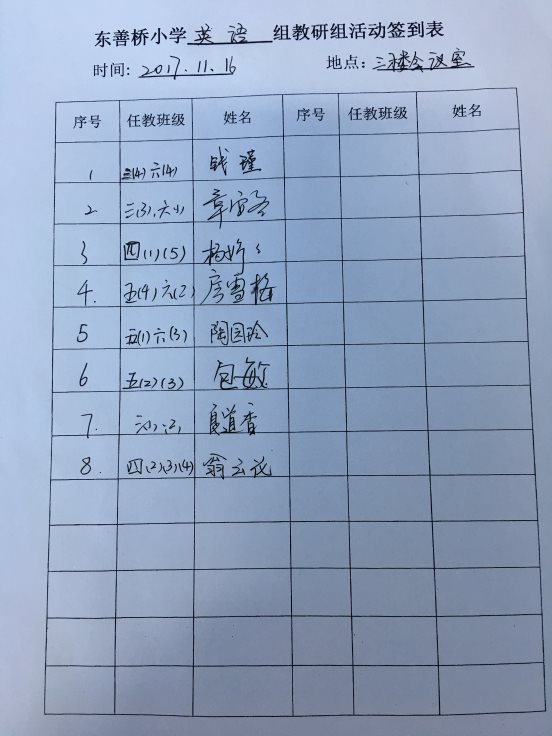 东善桥小学英语组教研组活动签到表
时间: 2017.11.16 地点: 三楼会议室
序号 任教班级 姓名 序号 任教班级 姓名
1 三(4) 六(4) 钱瑾
2 三(3), 六(1)
3 四(1)(5) 杨婷
4. 五(4) 六(2) 房雪梅
5 五(1) 六(3) 陶国玲
6 五(2)(3) 包敏
7. 夏道香
8. 四(2)(3)(4) 翁云